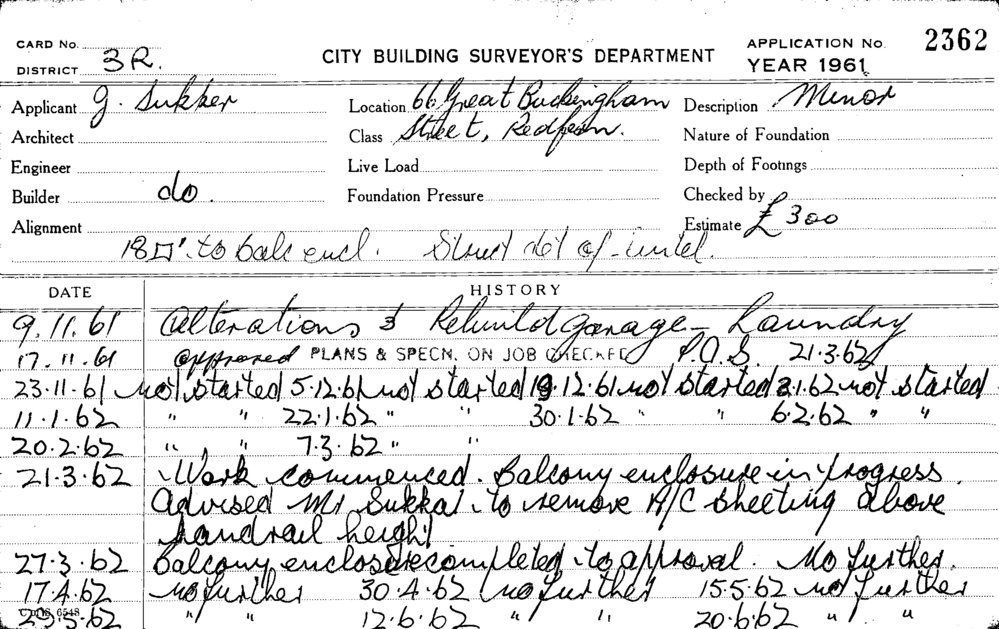 CARD No.
DISTRICT 3R.
CITY BUILDING SURVEYOR'S DEPARTMENT
APPLICATION No. 2362
YEAR 1961
Applicant J. Sukker Location 66 Great Buckingham Description Minor
Architect Class Street, Redfern. Nature of Foundation
Engineer Live Load Depth of Footings
Builder do. Foundation Pressure Checked by
Alignment Estimate £300
18□'. to balc encl. Struct det of lintel.
DATE HISTORY
9.11.61 Alterations & Rebuild garage - Laundry
17.11.61 approved PLANS & SPECN. ON JOB CHECKED 21.3.62
23.11.61 not started 5.12.61 not started 19.12.61 not started 2.1.62 not started
11.1.62 " " 22.1.62 " " 30.1.62 " " 6.2.62 " "
20.2.62 " " 7.3.62 " "
21.3.62 Work commenced. Balcony enclosure in progress.
Advised Mr Sukkar to remove A/C sheeting above
handrail height
27.3.62 Balcony enclosure completed to approval. No further.
17.4.62 no further 30.4.62 no further 15.5.62 no further
29.5.62 " " 12.6.62 " " 20.6.62 " "